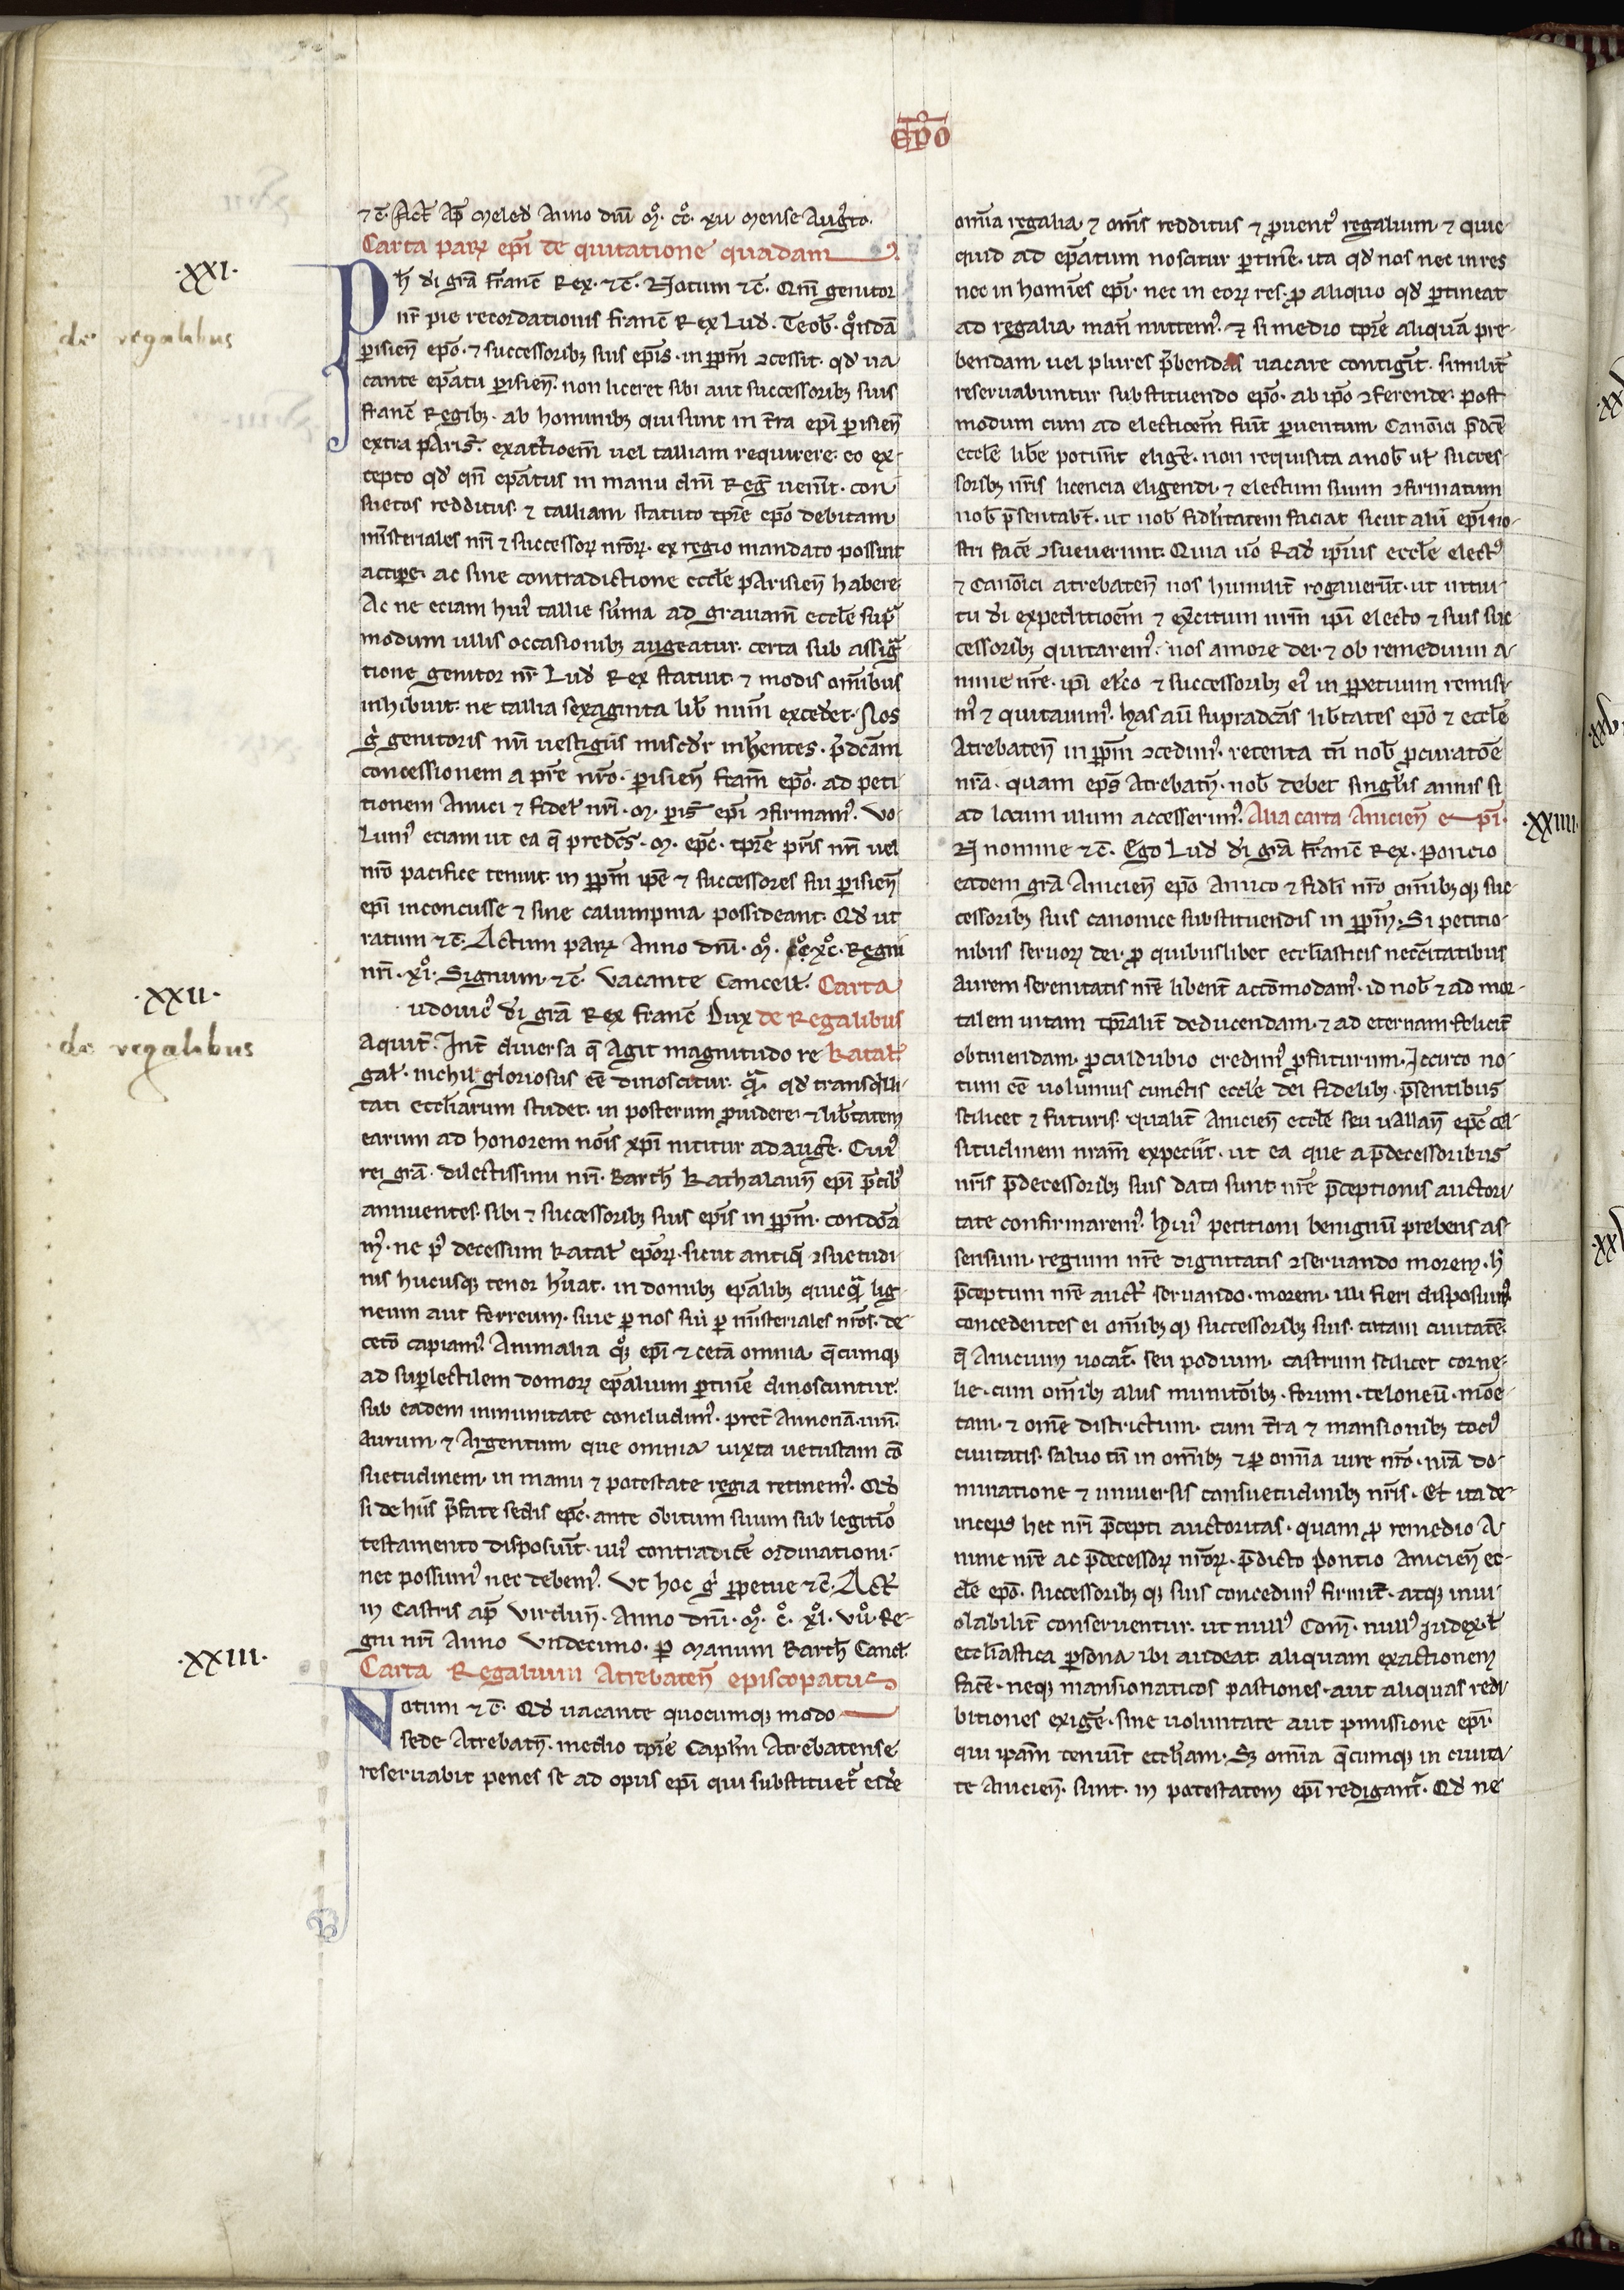 ep̄o
⁊ c̄. Act̄ ap̄ Meled̄ Anno dn̄i .mͦ. ccͦ. xii mense Aug̾to.
Carta pariꝝ ep̄i de quitatione quadam
.XXI.
Ph̄ di gr̄a franc̄ Rex. ⁊ c̄. Notum ⁊ c̄. Qm̄ genitor
nr̄ pie recordationis franc̄ Rex Lud̄. Teob̄. qͦndā
de regalibus
ꝑisien̄ ep̄o. ⁊ successoribꝫ suis ep̄is. in ꝑpm̄ ꝯcessit. qd̄ ua
cante ep̄atu ꝑisien̄. non liceret sibi aut successoribꝫ suis
franc̄ Regibꝫ. ab hominibꝫ qui sunt in t̄ra ep̄i ꝑisien̄
extra paris̄. exactioem̄ uel talliam requirere. eo ex-
cepto qd̄ qn̄ ep̄atus in manu dn̄i Reḡ uenit̄. con
suetos redditus. ⁊ talliam statuto tp̄re ep̄o debitam
mīsteriales nr̄i ⁊ successoꝝ nr̄oꝝ. ex regio mandato possint
accipe. ac sine contradictione eccl̄e parisien̄ habere.
Ac ne eciam huiꝰ tallie sum̄a ad grauam̄ eccl̄e supͣ
modum ullis occasionibꝫ augeatur. certa sub assigͣ
tione genitor nr̄ Lud̄ Rex statuit ⁊ modis om̄ibus
inhibuit. ne tallia sexaginta lib̄ num̄ excedet̄. Nos
gͦ genitoris nr̄i uestigiis misc̄dr̄ inh̄entes. p̄dcām
concessionem a pr̄e nr̄o. ꝑisien̄ fc̄am̄ ep̄o. ad peti
tionem Amici ⁊ fidel̄ nr̄i. M. ꝑis̄ ep̄i ꝯfirmamꝰ. Vo
lumꝰ eciam ut ea q̄ predc̄s. M. ep̄c. tp̄re pr̄is nr̄i uel
nr̄o pacifice tenuit. in ꝑpm̄ ip̄e ⁊ successores sui ꝑisien̄
ep̄i inconcusse ⁊ sine calumpnia possideant. Qd̄ ut
ratum ⁊ c̄. Actum pariꝝ Anno dn̄i. mͦ. cͦ. xcͦ. Regni
nr̄i. xiͦ. Signum ⁊ c̄. Vacante Cancell̄. Carta
.XXII.
udouicꝰ di gr̄a Rex franc̄ Dux de Regalibus
de regalibus
Aquit̄. Int̄ diuersa q̄ Agit magnitudo re Katal̄.
gal̄. nichil gloriosius ēē dinoscitur. qͣ. qd̄ tranqͥlli
tati eccl̄iarum studet. in posterum prouidere. ⁊ lib̄tatem
earum ad honorem nōis xp̄i nititur adauge. Cuiꝰ
rei gr̄a. dilectissimi nr̄i. Barth̄ Kathalaun̄ ep̄i p̄cibꝰ
annuentes. sibi ⁊ successoribꝫ suis ep̄is in ꝑpm̄. condōa
mꝰ. ne pꝰ decessum Katal̄ ep̄oꝝ. sicut antiqͣ ꝯsuetudi
nis hucusqꝫ tenor h̄uat. in domibꝫ ep̄alibꝫ quicqͣ lig-
neum aut ferreum. siue ꝑ nos siū ꝑ mīsteriales nr̄os. de
cet̄o capiamꝰ. Animalia qͦꝫ ep̄i ⁊ cet̄a omnia q̄cumqꝫ
ad supellectilem domoꝝ ep̄alium ꝑtin̄e dinoscuntur.
sub eadem inmunitate concludimꝰ. pret̄ Annonā. uin̄.
aurum ⁊ Argentum que omnia iuxta uetustam cō
suetudinem in manu ⁊ potestate regia retinemꝰ. Qd̄
si de hiis p̄fate sedis ep̄c. ante obitum suum sub legitīo
testamento disposuit̄. uiꝰ contradice ordinationi.
nec possumꝰ nec debemꝰ. Vt hoc gͦ ꝑpetue ⁊ c̄. Act̄
in Castris ap̄ Virdun̄. Anno dn̄i. mͦ. cͦ. xlͦ. viiͦ. Re-
gni nr̄i Anno Vndecimo. ꝑ Manum Barth̄ Canc̄l.
.XXIII.
Carta Regalium Atrebaten̄ episcopatus
Notum ⁊ c̄. Qd̄ uacante quocumqꝫ modo
sede Atrebatn̄. medio tp̄re Capl̄m Atrebatense
reseruabit penes se ad opus ep̄i qui substituetͣ eid̄e
om̄ia regalia. ⁊ om̄s redditus ⁊ ꝓuentꝰ regalium. ⁊ quic-
quid ad ep̄atum noscitur ꝑtin̄e. ita qd̄ nos nec in res
nec in homīes ep̄i. nec in eoꝝ res. ꝓ aliquo qd̄ ꝑtineat
ad regalia. man̄ mittemꝰ. ⁊ si medio tp̄re aliquā pre-
bendam. uel plures p̄bendas uacare contigit̄. similit̄
reseruabuntur substituendo ep̄o. ab ip̄o ꝯferende. post
modum cum ad electiōem̄ fuit̄ ꝑuentum. Canōici p̄dc̄e
eccl̄e lib̄e poterunt eligē. non requisita a nob̄ ut̄ succes-
soribꝫ nr̄is licencia eligendi. ⁊ electum suum ꝯfirmatum
nob̄ p̄sentabt̄. ut nob̄ fidl̄itatem faciat. sicut alii ep̄i no-
stri facē ꝯsueuerunt. Quia uͦo Rad̄ ipīus eccl̄e electꝰ
⁊ Canōici atrebaten̄ nos humilit̄ rogauer̄t. ut intui-
tu di expeditioēm ⁊ ex̄citum nrm̄ ipi electo ⁊ suis suc
cessoribꝫ quitaremꝰ. nos amore dei. ⁊ ob remedium a-
nime nr̄e. ipi elc̄o ⁊ successoribꝫ eiꝰ in ꝑpetuum remisi-
mꝰ ⁊ quitauimꝰ. has aū supradc̄as lib̄tates ep̄o ⁊ eccl̄e
Atrebaten̄ in ꝑpm̄ ꝯcedimꝰ. retenta tn̄ nob̄ ꝓcuratōe
nr̄a. quam ep̄s Atrebatn̄. nob̄ debet singl̄is annis si
ad locum illum accesserimꝰ. Alia carta Anicien̄ ep̄i.
.XXIIII.
N nomine ⁊ c̄. Ego Lud̄ di gr̄a franc̄ Rex. poncio
eadem gr̄a Anicien̄ ep̄o Amico ⁊ fidl̄i nr̄o om̄ibꝫqꝫ suc-
cessoribꝫ suis canonice substituendis in ꝑpm̄. Si petitio-
nibus seruoꝝ dei. ꝓ quibuslibet eccl̄iasticis necc̄itatibus
aurem serenitatis nr̄e libent̄ accōmodamꝰ. id nob̄ ⁊ ad mor-
talem uitam tp̄ralit̄ deducendam. ⁊ ad eternam felicit̄
obtinendam. ꝓculdubio credimꝰ ꝓfuturum. Iccirco no-
tum cē uolumus cunctis eccl̄e dei fidelibꝫ p̄sentibus
scilicet ⁊ futuris. qualit̄ Anicien̄ eccl̄e seu uallan̄ ep̄c cel-
situdinem nram̄ expeciit̄. ut ea que a p̄decessoribus
nr̄is p̄decessoribꝫ suis data sunt. nr̄e p̄ceptionis auctori-
tate confirmaremꝰ. huiꝰ petitioni benignū prebens as-
sensum. regium nr̄e dignitatis ꝯseruando morem. hͦ
p̄ceptum nr̄e auct̄. seruando. morem. illi fieri disposuimꝰ.
concedentes ei om̄ibꝫqꝫ successoribꝫ suis. totam ciuitatē.
q̄ Anicium uocatͣ. seu podium. castrum scilicet corne-
lie. cum om̄ibꝫ aliis munitōibꝫ. forum. teloneū. mōe-
tam. ⁊ om̄e districtum. cum t̄ra ⁊ mansionibꝫ tociꝰ
ciuitatis. saluo tn̄ in om̄ibꝫ ⁊ ꝑ om̄ia iure nr̄o. nr̄a do-
minatione ⁊ uniuersis consuetudinibꝫ nr̄is. Et ita de-
inceps hec nr̄i p̄cepti auctoritas. quam ꝓ remedio A-
nime nr̄e ac p̄decessoꝝ nr̄oꝝ. p̄dicto pontio Anicien̄ ec-
cl̄e ep̄o. successoribꝫqꝫ suis concedimꝰ firmit̄. atqꝫ inui-
olabilit̄ conseruentur. ut nullꝰ Com̄. nullꝰ iudex. ł
eccl̄iastica ꝑsona ibi audeat aliquam exactionem
facē. neqꝫ mansionaticos pastiones. aut aliquas redi-
bitiones exige. sine uoluntate aut ꝑmissione ep̄i.
qui ipam̄ tenuit̄ eccl̄iam. Sꝫ om̄ia q̄cumqꝫ in ciuita-
te Anicien̄. sunt. in potestatem ep̄i redigantͣ. Qd̄ ne